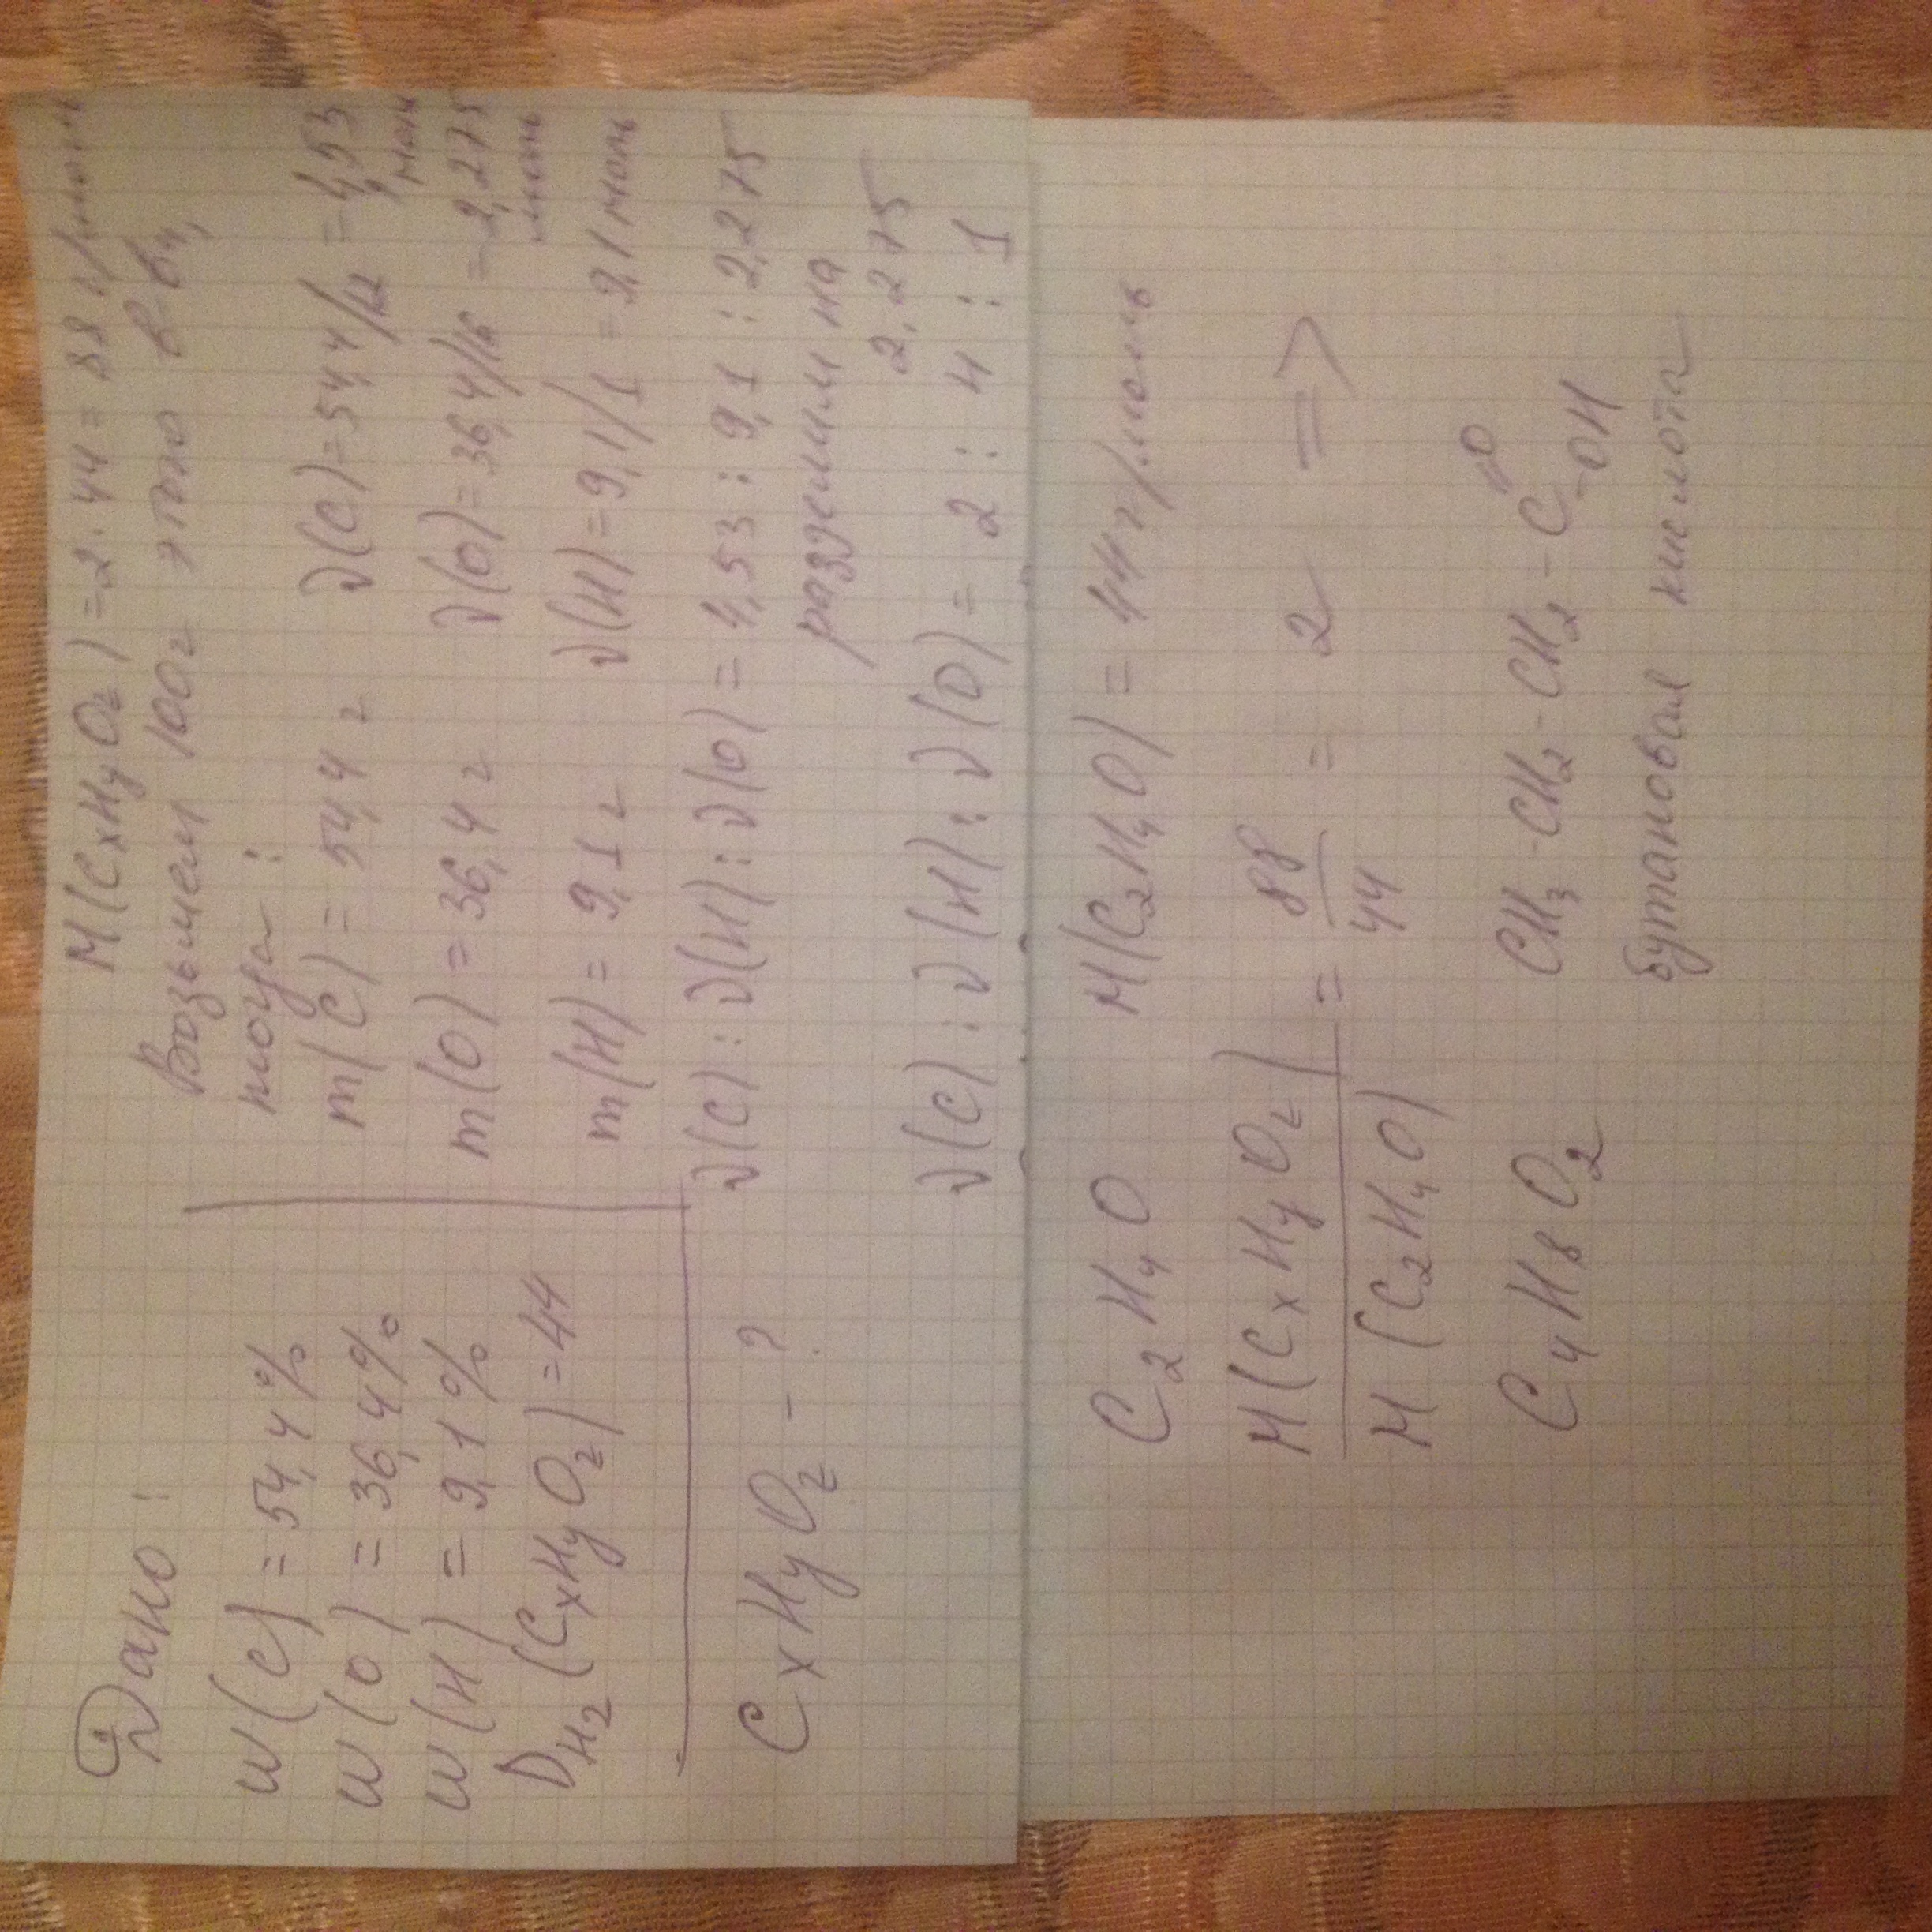 Дано:
w(C) = 54,4%
w(O) = 36,4%
w(H) = 9,1%
D_H₂(CxHyOz) = 44
CxHyOz - ?
M(CxHyOz) = 2·44 = 88 г/моль
Возьмем 100г этого в-ва,
тогда:
m(C) = 54,4 г ν(C) = 54,4/12 = 4,53 моль
m(O) = 36,4 г ν(O) = 36,4/16 = 2,275 моль
m(H) = 9,1 г ν(H) = 9,1/1 = 9,1 моль
ν(C) : ν(H) : ν(O) = 4,53 : 9,1 : 2,275
разделим на
2,275
ν(C) : ν(H) : ν(O) = 2 : 4 : 1
C₂H₄O M(C₂H₄O) = 44 г/моль
M(CxHyOz) / M(C₂H₄O) = 88/44 = 2 =>
C₄H₈O₂ CH₃-CH₂-CH₂-C=O -OH
бутановая кислота